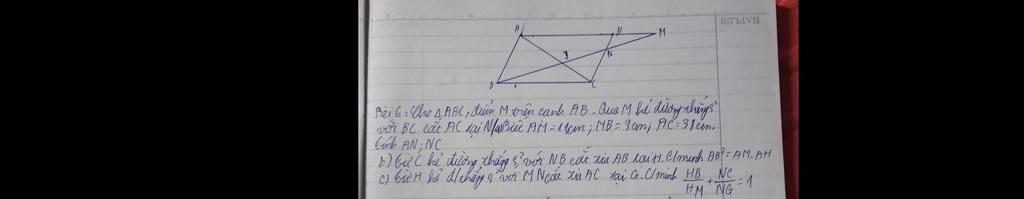 A B M
I N
D C
Bài 6: Cho △ABC, điểm M trên cạnh AB. Qua M kẻ đường thẳng s²
với BC cắt AC tại N/a) Biết AM=11cm; MB=8cm; AC=38cm.
tính AN; NC
b) Từ C kẻ đường thẳng s² với NB cắt tia AB tại H. C/minh AB²=AM.AH
c) Từ H kẻ đ/thẳng s² với MN cắt tia AC tại G. C/minh HB/HM + NC/NG = 1